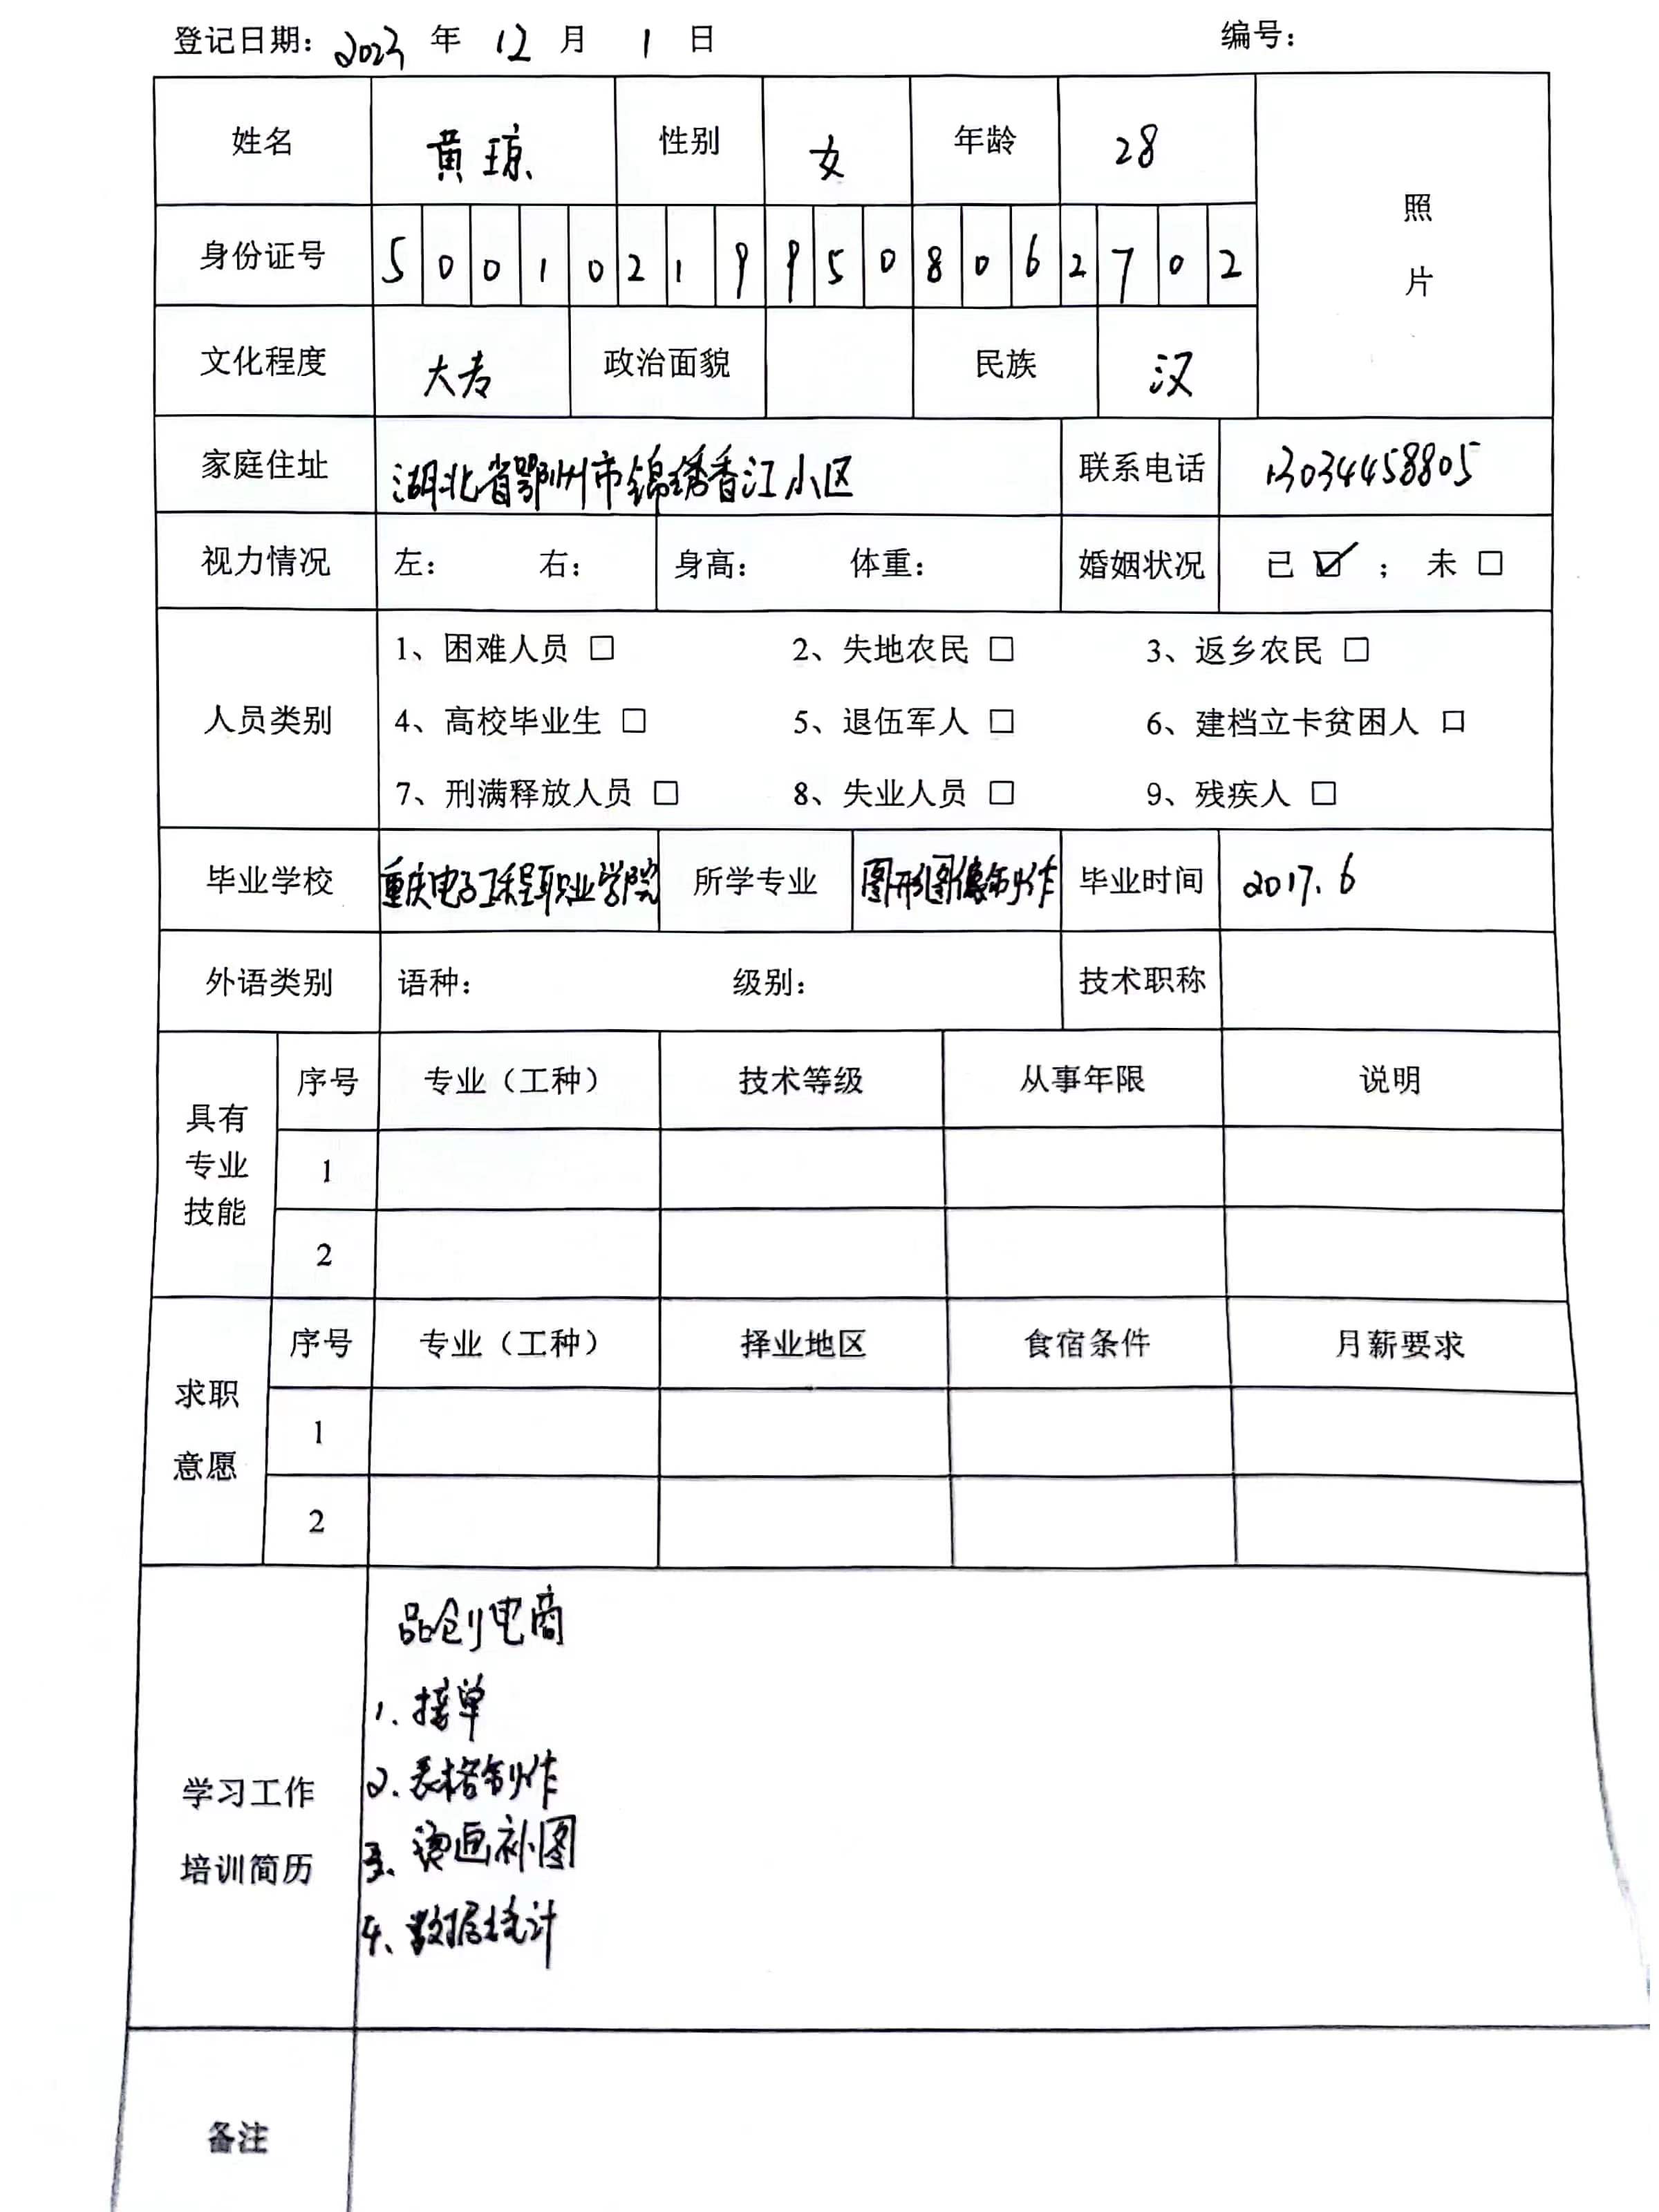 登记日期：2023 年 12 月 1 日 编号：
姓名 黄琼 性别 女 年龄 28
照片
身份证号 500102199508062702
文化程度 大专 政治面貌 民族 汉
家庭住址 湖北省鄂州市锦绣香江小区 联系电话 13034458805
视力情况 左： 右： 身高： 体重： 婚姻状况 已 ☑ ； 未 □
人员类别
1、困难人员 □ 2、失地农民 □ 3、返乡农民 □
4、高校毕业生 □ 5、退伍军人 □ 6、建档立卡贫困人 口
7、刑满释放人员 □ 8、失业人员 □ 9、残疾人 □
毕业学校 重庆电子工程职业学院 所学专业 图形图像制作 毕业时间 2017.6
外语类别 语种： 级别： 技术职称
具有专业技能
序号 专业（工种） 技术等级 从事年限 说明
1
2
求职意愿
序号 专业（工种） 择业地区 食宿条件 月薪要求
1
2
学习工作
培训简历
品创电商
1. 接单
2. 表格制作
3. 烫画补图
4、数据统计
备注